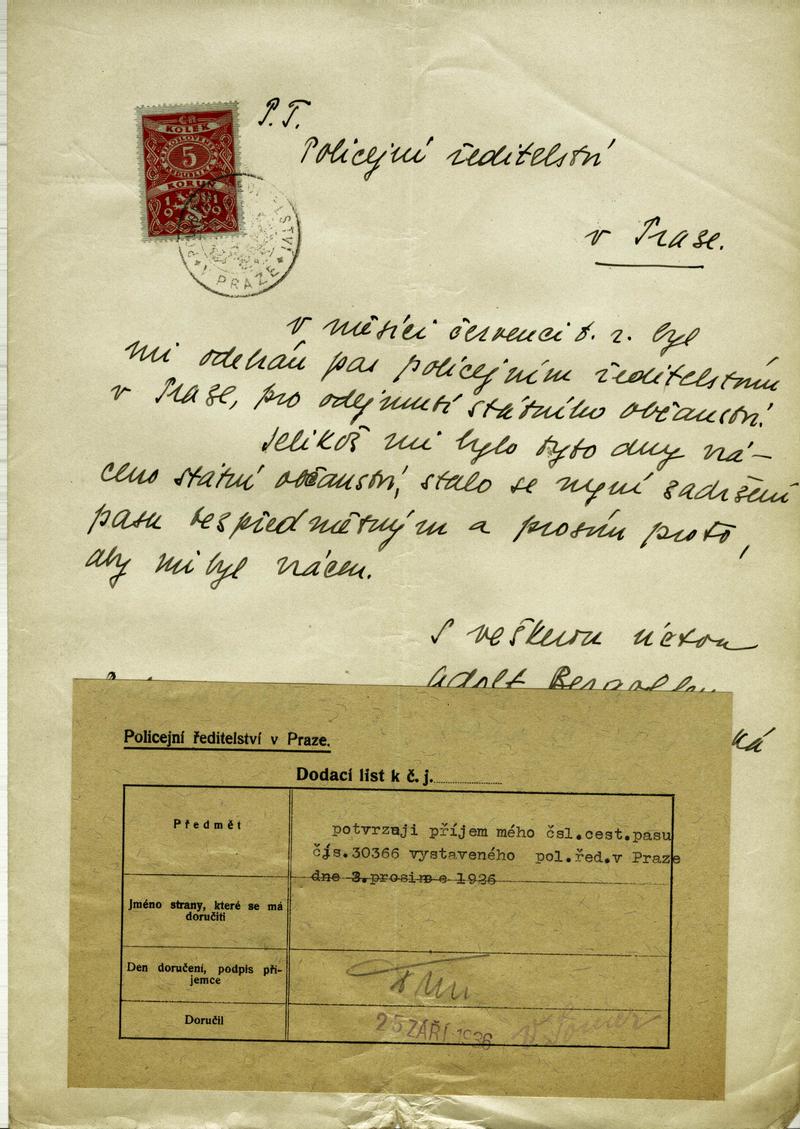 KOLEK
ČESKOSLOVENSKÁ
REPUBLIKA
5
KORUN
1919
POLICEJNÍ ŘEDITELSTVÍ
V PRAZE
P. T.
Policejní ředitelství
v Praze.
V měsíci červenci t. r. byl
mi odebrán pas policejním ředitelstvím
v Praze, pro odejmutí státního občanství.
Jelikož mi bylo tyto dny vrá-
ceno státní občanství, stalo se nyní zadržení
pasu bezpředmětným a prosím proto,
aby mi byl vrácen.
S veškerou úctou
Adolf
ká
Policejní ředitelství v Praze.
Dodací list k č. j.
Předmět
potvrzuji příjem mého čsl.cest.pasu
čís.30366 vystaveného pol.řed.v Praze
dne 3.prosince 1926
Jméno strany, které se má
doručiti
Den doručení, podpis pří-
jemce
Doručil
25 ZÁŘÍ 1936